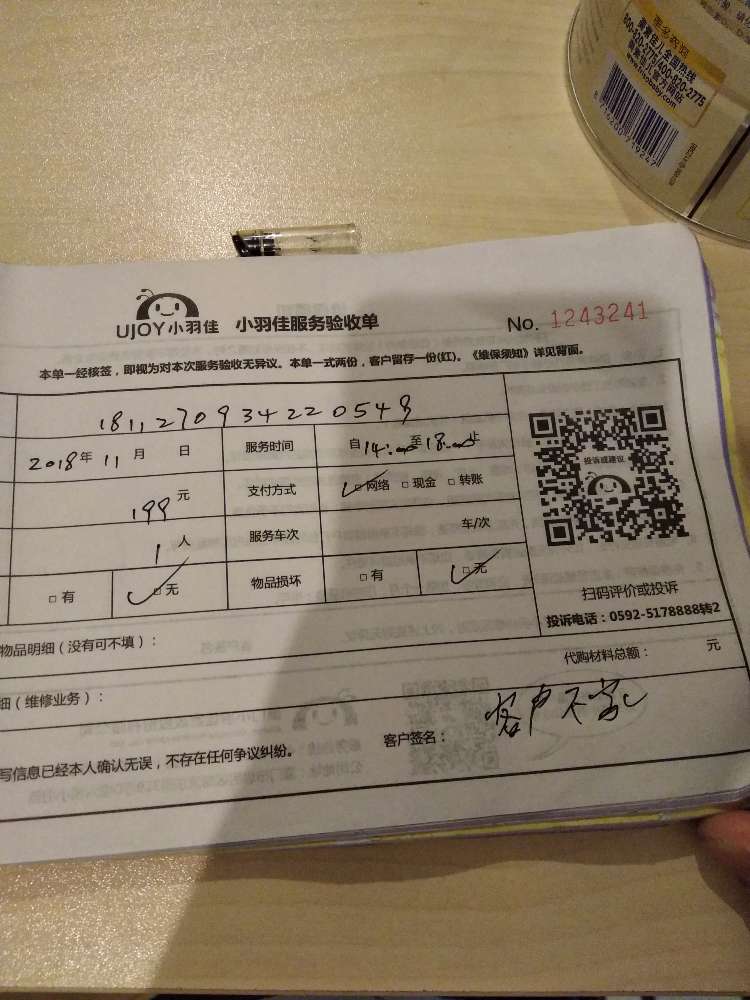 美素佳儿全国热线
800-820-2775/400-820-2775
美素佳儿官方网站
www.frisobaby.com
8 716200 719247
UJOY小羽佳 小羽佳服务验收单 No. 1243241
本单一经核签，即视为对本次服务验收无异议。本单一式两份，客户留存一份(红)。《维保须知》详见背面。
181127093422054号
2018年 11月 日 服务时间 自14:00至18:00止
199元 支付方式 网络 现金 转账
1人 服务车次 车/次
有 无 物品损坏 有 无
投诉或建议
扫码评价或投诉
投诉电话：0592-5178888转2
物品明细（没有可不填）：
代购材料总额： 元
细（维修业务）：
写信息已经本人确认无误，不存在任何争议纠纷。 客户签名： 客户不在